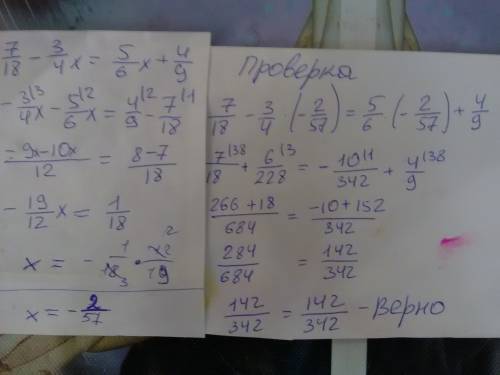 7/18 - 3/4 x = 5/6 x + 4/9
- 3/4 x |3 - 5/6 x |2 = 4/9 |2 - 7/18 |1
-9x-10x/12 = 8-7/18
- 19/12 x = 1/18
x = - 1/18 3 · 12 2/19
x = - 2/57
Проверка
7/18 - 3/4 · (- 2/57) = 5/6 · (- 2/57) + 4/9
7/18 |38 + 6/228 |3 = - 10/342 |1 + 4/9 |38
266 + 18/684 = -10 + 152/342
284/684 = 142/342
142/342 = 142/342 - Верно